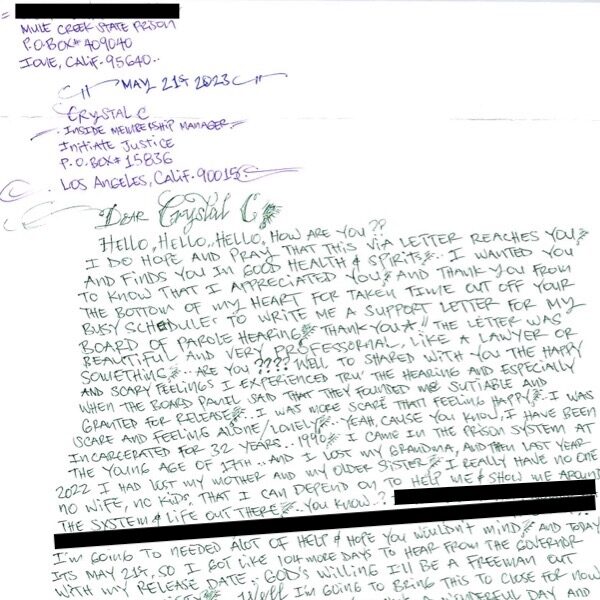 MULE CREEK STATE PRISON
P.O. BOX# 409040
IONE, CALIF. 95640..
MAY 21st 2023
CRYSTAL C
INSIDE MEMBERSHIP MANAGER.
INITIATE JUSTICE
P.O. BOX# 15836
LOS ANGELES, CALIF. 90015
DEAR Crystal C
HELLO, HELLO, HELLO, HOW ARE YOU??
I DO HOPE AND PRAY THAT THIS VIA LETTER REACHES YOU
AND FINDS YOU IN GOOD HEALTH & SPIRITS.. I WANTED YOU
TO KNOW THAT I APPRECIATED YOU AND THANK YOU FROM
THE BOTTOM OF MY HEART FOR TAKEN TIME OUT OFF YOUR
BUSY SCHEDULE TO WRITE ME A SUPPORT LETTER FOR MY
BOARD OF PAROLE HEARING THANK YOU!! THE LETTER WAS
BEAUTIFUL AND VERY PROFESSORNAL, LIKE A LAWYER OR
SOMETHING.. ARE YOU ???? WELL TO SHARED WITH YOU THE HAPPY
AND SCARY FEELINGS I EXPERIENCED TRU' THE HEARING AND ESPECIALLY
WHEN THE BOARD PANIL SAID THAT THEY FOUNDED ME SUTIABLE AND
GRANTED FOR RELEASE.. I WAS MORE SCARE THAT FEELING HAPPY. I WAS
SCARE AND FEELING ALONE/LONELY.. YEAH, CAUSE YOU KNOW, I HAVE BEEN
INCARCERATED FOR 32 YEARS.. 1990 I CAME IN THE PRISON SYSTEM AT
THE YOUNG AGE OF 17TH.. AND I LOST MY GRANDMA, AND THEN LAST YEAR
2022 I HAD LOST MY MOTHER AND MY OLDER SISTER I REALLY HAVE NO ONE
NO WIFE, NO KIDS THAT I CAN DEPEND ON TO HELP ME & SHOW ME AROUND
THE SYSTEM & LIFE OUT THERE.. YOU KNOW.?
I'M GOING TO NEEDED ALOT OF HELP & HOPE YOU WOULDN'T MIND AND TODAY
ITS MAY 21st, SO I GOT LIKE 104 MORE DAYS TO HEAR FROM THE GOVERNOR
WITH MY RELEASE DATE.. GOD'S WILLING I'LL BE A FREEMAN OUT
WELL I'M GOING TO BRING THIS TO CLOSE FOR NOW
A WONDERFUL DAY AND